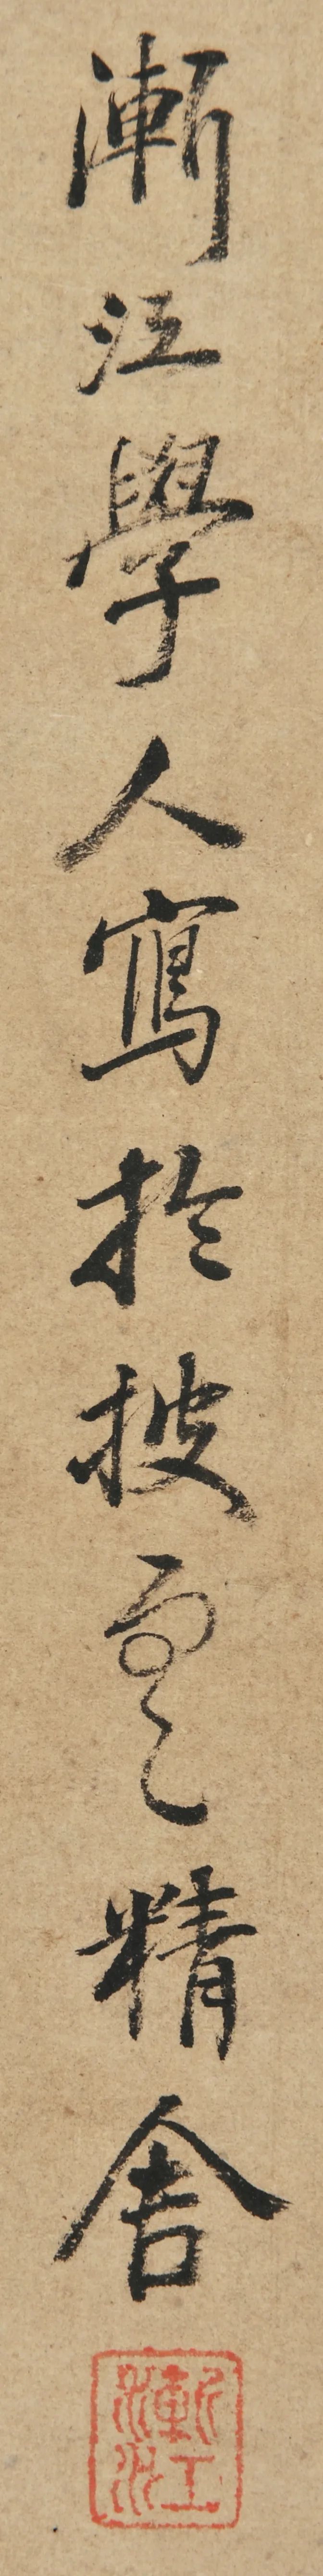 漸江學人寫於披雲精舍
漸江